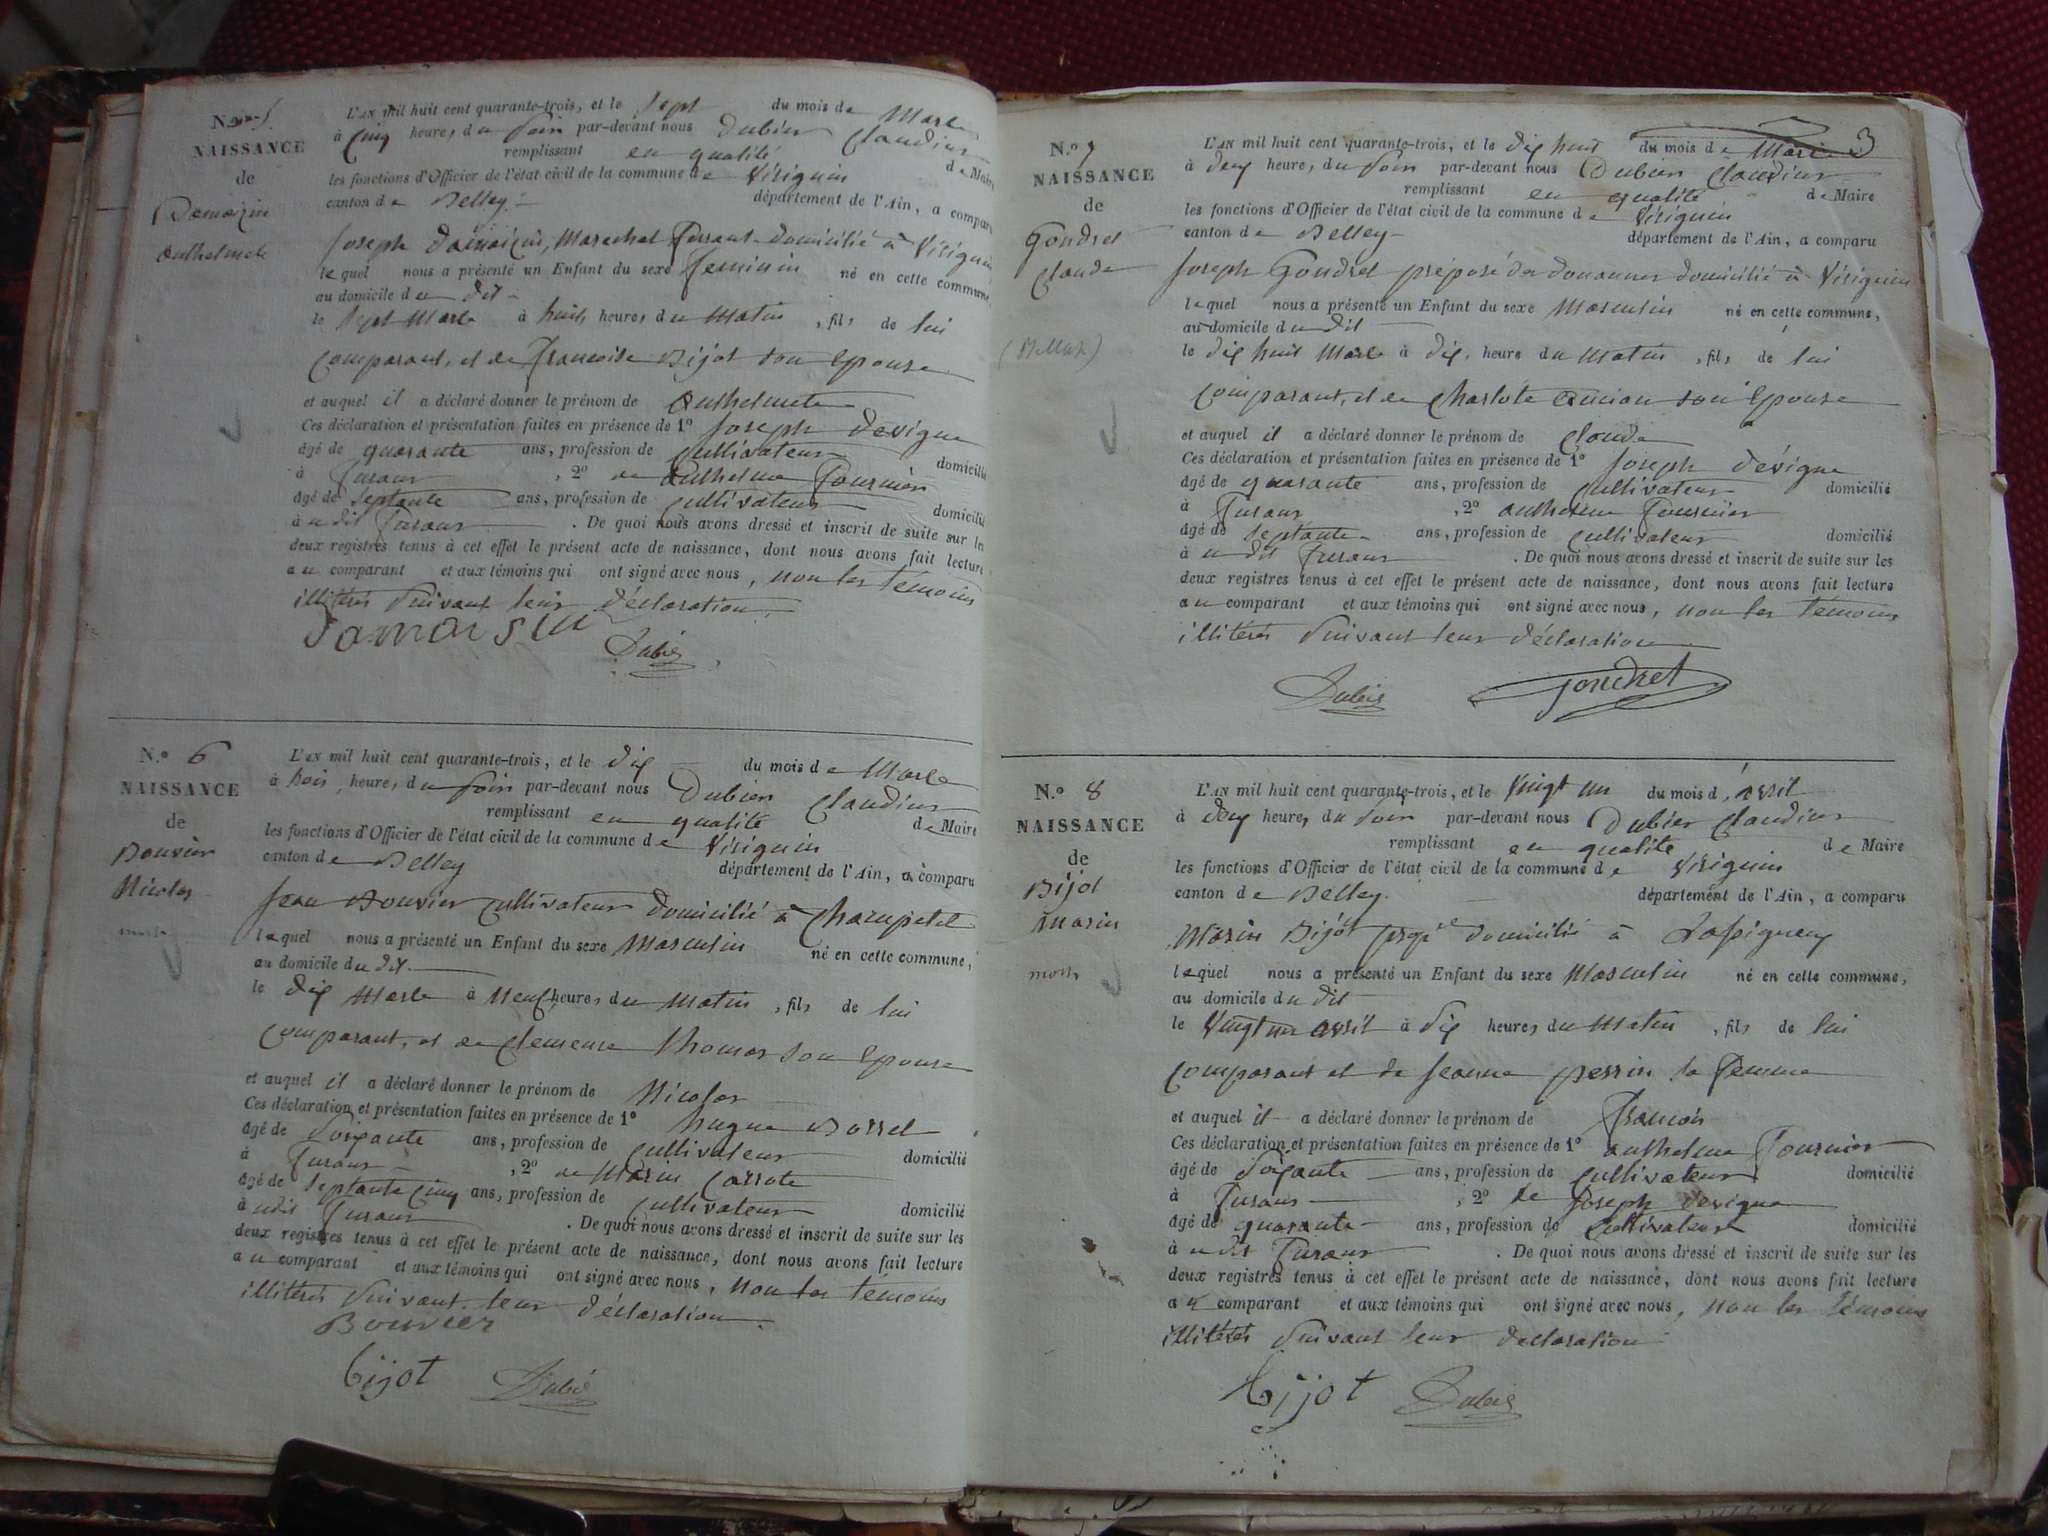 N.º 5
NAISSANCE
de
Demoizin
anthelmete
L'AN mil huit cent quarante-trois, et le sept du mois de Mars
à cinq heures du soir par-devant nous Dubien Claudius
remplissant en qualité de Maire
les fonctions d'Officier de l'état civil de la commune de Virignin
canton de Belley département de l'Ain, a comparu
Joseph Marechal Ferrant domicilié à Virignin
lequel nous a présenté un Enfant du sexe Feminin né en cette commune,
au domicile du dit
le sept Mars à huit heures du Matin, fils de lui
comparant, et de Francoise Bijot son Epouse
et auquel il a déclaré donner le prénom de anthelmete
Ces déclaration et présentation faites en présence de 1º Joseph devigne
âgé de quarante ans, profession de cultivateur domicilié
à Furans, 2º de anthelme Fournier
âgé de septante ans, profession de cultivateur domicilié
à u dit Furans. De quoi nous avons dressé et inscrit de suite sur les
deux registres tenus à cet effet le présent acte de naissance, dont nous avons fait lecture
au comparant et aux témoins qui ont signé avec nous, non les témoins
illitérés suivant leur déclaration.
Damoisin
Dubien
N.º 6
NAISSANCE
de
Bouvier
Nicolas
mort
L'AN mil huit cent quarante-trois, et le dix du mois de Mars
à trois heures du soir par-devant nous Dubien Claudius
remplissant en qualité de Maire
les fonctions d'Officier de l'état civil de la commune de Virignin
canton de Belley département de l'Ain, a comparu
Jean Bouvier cultivateur domicilié à Champetel
lequel nous a présenté un Enfant du sexe Masculin né en cette commune,
au domicile du dit
le dix Mars à Neuf heures du Matin, fils de lui
comparant, et de Clemence Thomas son Epouse
et auquel il a déclaré donner le prénom de Nicolas
Ces déclaration et présentation faites en présence de 1º hugue Borrel
âgé de soixante ans, profession de cultivateur domicilié
à Furans, 2º de Marin
âgé de septante cinq ans, profession de cultivateur domicilié
à u dit Furans. De quoi nous avons dressé et inscrit de suite sur les
deux registres tenus à cet effet le présent acte de naissance, dont nous avons fait lecture
au comparant et aux témoins qui ont signé avec nous, non les témoins
illitérés suivant leur déclaration.
Bouvier
bijot Dubien
3
N.º 7
NAISSANCE
de
Gondret
Claude
L'AN mil huit cent quarante-trois, et le dix huit du mois de Mars
à deux heures du soir par-devant nous Dubien Claudius
remplissant en qualité de Maire
les fonctions d'Officier de l'état civil de la commune de Virignin
canton de Belley département de l'Ain, a comparu
Joseph Gondret préposé des douannes domicilié à Virignin
lequel nous a présenté un Enfant du sexe Masculin né en cette commune,
au domicile du dit
le dix huit Mars à dix heure du Matin, fils de lui
comparant, et de Charlote son Epouse
et auquel il a déclaré donner le prénom de Claude
Ces déclaration et présentation faites en présence de 1º Joseph dévigne
âgé de quarante ans, profession de cultivateur domicilié
à Furans, 2º anthelme Fournier
âgé de septante ans, profession de cultivateur domicilié
à u dit Furans. De quoi nous avons dressé et inscrit de suite sur les
deux registres tenus à cet effet le présent acte de naissance, dont nous avons fait lecture
au comparant et aux témoins qui ont signé avec nous, non les témoins
illitérés suivant leur déclaration
Dubien gondret
N.º 8
NAISSANCE
de
Bijot
Marin
mort
L'AN mil huit cent quarante-trois, et le vingt un du mois d'avril
à deux heures du soir par-devant nous Dubien Claudius
remplissant en qualité de Maire
les fonctions d'Officier de l'état civil de la commune de Virignin
canton de Belley. département de l'Ain, a comparu
Marin Bijot domicilié à
lequel nous a présenté un Enfant du sexe Masculin né en cette commune,
au domicile du dit
le vingt un avril à dix heures du Matin, fils de lui
comparant et de Jeanne perrin sa Femme
et auquel il a déclaré donner le prénom de François
Ces déclaration et présentation faites en présence de 1º anthelme Fournier
âgé de soixante ans, profession de cultivateur domicilié
à Furans, 2º de Joseph devigne
âgé de quarante ans, profession de cultivateur domicilié
à u dit Furans. De quoi nous avons dressé et inscrit de suite sur les
deux registres tenus à cet effet le présent acte de naissance, dont nous avons fait lecture
au comparant et aux témoins qui ont signé avec nous, non les témoins
illitérés suivant leur declaration
bijot Dubien